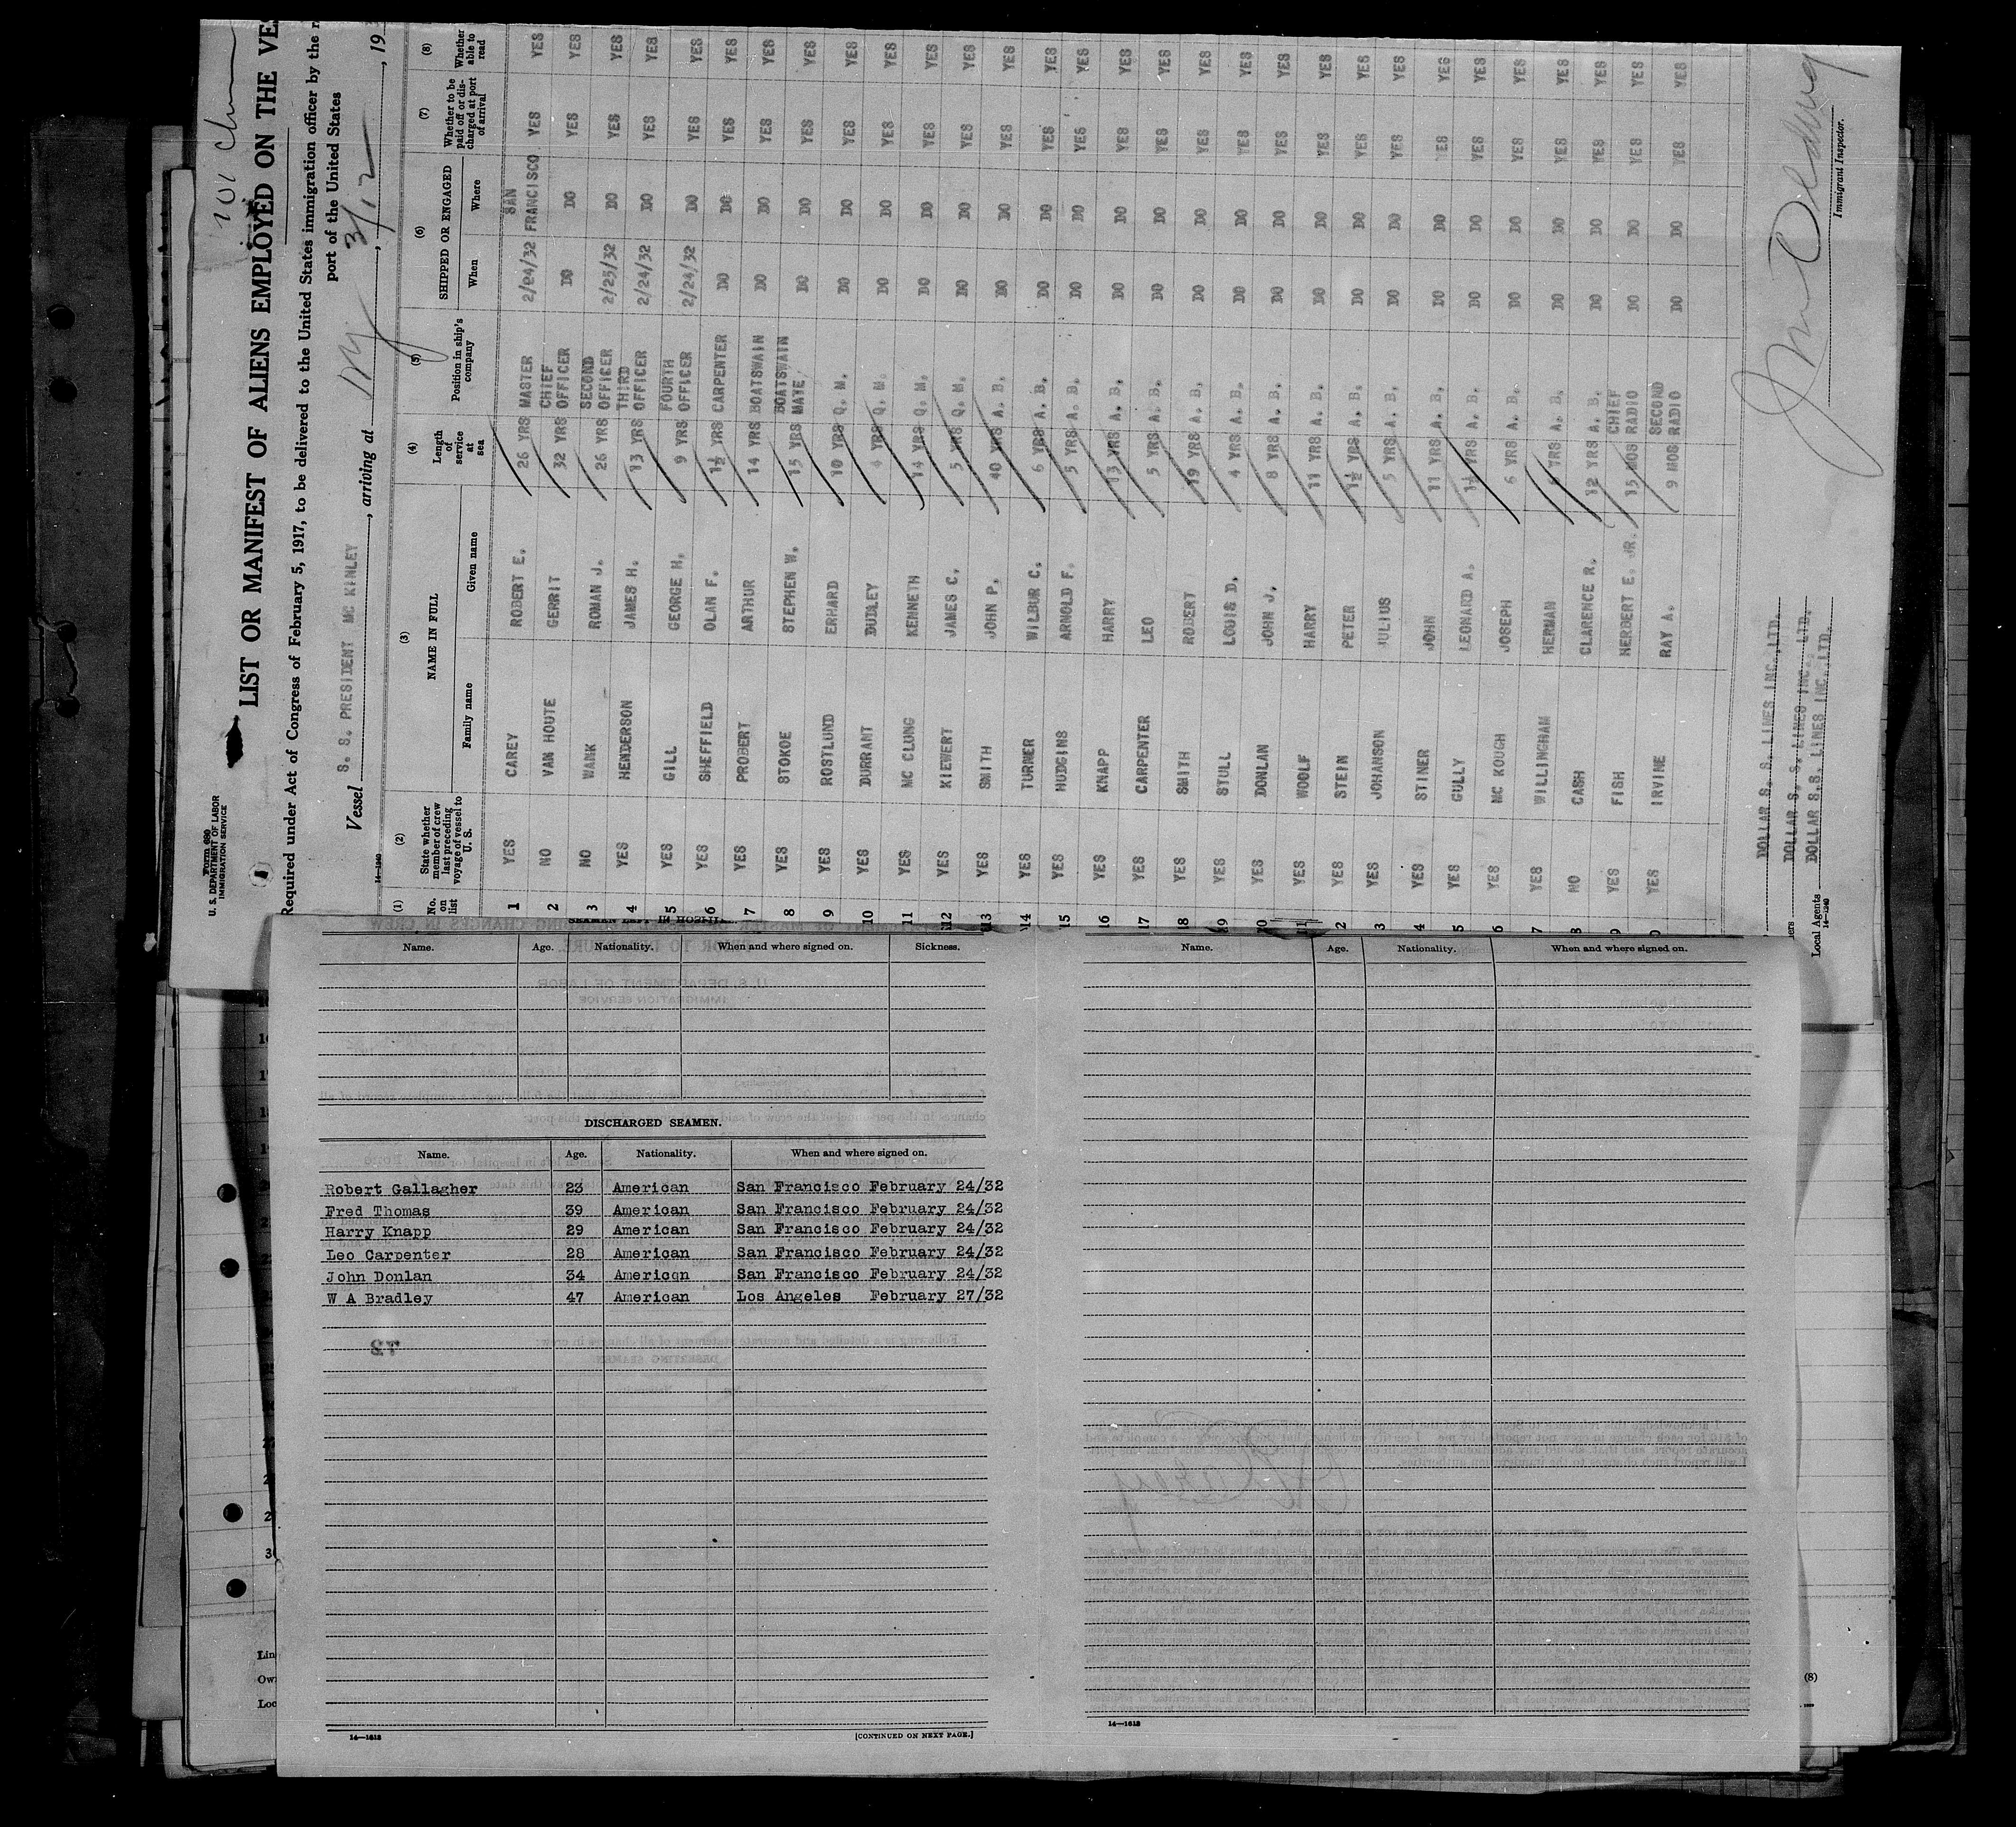 Form 680
U. S. DEPARTMENT OF LABOR
IMMIGRATION SERVICE
LIST OR MANIFEST OF ALIENS EMPLOYED ON THE VE
Required under Act of Congress of February 5, 1917, to be delivered to the United States immigration officer by the
port of the United States
Vessel S. S. PRESIDENT MC KINLEY, arriving at NY, 3/12, 19
14—1240
(1) (2) (3) (4) (5) (6) (7) (8)
No. on list | State whether member of crew last preceding voyage of vessel to U. S. | NAME IN FULL Family name Given name | Length of service at sea | Position in ship's company | SHIPPED OR ENGAGED When Where | Whether to be paid off or discharged at port of arrival | Whether able to read
1 YES CAREY ROBERT E. 26 YRS MASTER 2/24/32 SAN FRANCISCO YES YES
2 NO VAN HOUTE GERRIT 32 YRS CHIEF OFFICER DO DO YES YES
3 NO WANK ROMAN J. 26 YRS SECOND OFFICER 2/25/32 DO YES YES
4 YES HENDERSON JAMES H. 13 YRS THIRD OFFICER 2/24/32 DO YES YES
5 YES GILL GEORGE H. 9 YRS FOURTH OFFICER 2/24/32 DO YES YES
6 YES SHEFFIELD OLAN F. 1½ YRS CARPENTER DO DO YES YES
7 YES PROBERT ARTHUR 14 YRS BOATSWAIN DO DO YES YES
8 YES STOKOE STEPHEN W. 15 YRS BOATSWAIN MATE DO DO YES YES
9 YES ROSTLUND ERHARD 10 YRS Q. M. DO DO YES YES
10 YES DURRANT DUDLEY 4 YRS Q. M. DO DO YES YES
11 YES MC CLUNG KENNETH 14 YRS Q. M. DO DO YES YES
12 YES KIEWERT JAMES C. 5 YRS Q. M. DO DO YES YES
13 YES SMITH JOHN P. 40 YRS A. B. DO DO YES YES
14 YES TURNER WILBUR C. 6 YRS A. B. DO DO YES YES
15 YES HUDGINS ARNOLD F. 5 YRS A. B. DO DO YES YES
16 YES KNAPP HARRY 13 YRS A. B. DO DO YES YES
17 YES CARPENTER LEO 5 YRS A. B. DO DO YES YES
18 YES SMITH ROBERT 19 YRS A. B. DO DO YES YES
19 YES STULL LOUIS D. 4 YRS A. B. DO DO YES YES
20 YES DONLAN JOHN J. 8 YRS A. B. DO DO YES YES
1 YES WOOLF HARRY 11 YRS A. B. DO DO YES YES
2 YES STEIN PETER 1½ YRS A. B. DO DO YES YES
3 YES JOHANSON JULIUS 5 YRS A. B. DO DO YES YES
4 YES STINER JOHN 11 YRS A. B. DO DO YES YES
5 YES GULLY LEONARD A. 1½ YRS A. B. DO DO YES YES
6 YES MC KOUGH JOSEPH 6 YRS A. B. DO DO YES YES
7 YES WILLINGHAM HERMAN YRS A. B. DO DO YES YES
8 NO CASH CLARENCE R. 12 YRS A. B. DO DO YES YES
9 YES FISH HERBERT E. JR. 15 MOS CHIEF RADIO DO DO YES YES
0 YES IRVINE RAY A. 9 MOS SECOND RADIO DO DO YES YES
DOLLAR S. S. LINES INC., LTD.
DOLLAR S. S. LINES INC., LTD.
Local Agents DOLLAR S.S. LINES INC. LTD.
14—1240
Immigrant Inspector.
Name. Age. Nationality. When and where signed on. Sickness.
DISCHARGED SEAMEN.
Name. Age. Nationality. When and where signed on.
Robert Gallagher 23 American San Francisco February 24/32
Fred Thomas 39 American San Francisco February 24/32
Harry Knapp 29 American San Francisco February 24/32
Leo Carpenter 28 American San Francisco February 24/32
John Donlan 34 American San Francisco February 24/32
W A Bradley 47 American Los Angeles February 27/32
14—1613
[CONTINUED ON NEXT PAGE.]
Name. Age. Nationality. When and where signed on.
14—1613
Lin
Ow
Loc
(8)